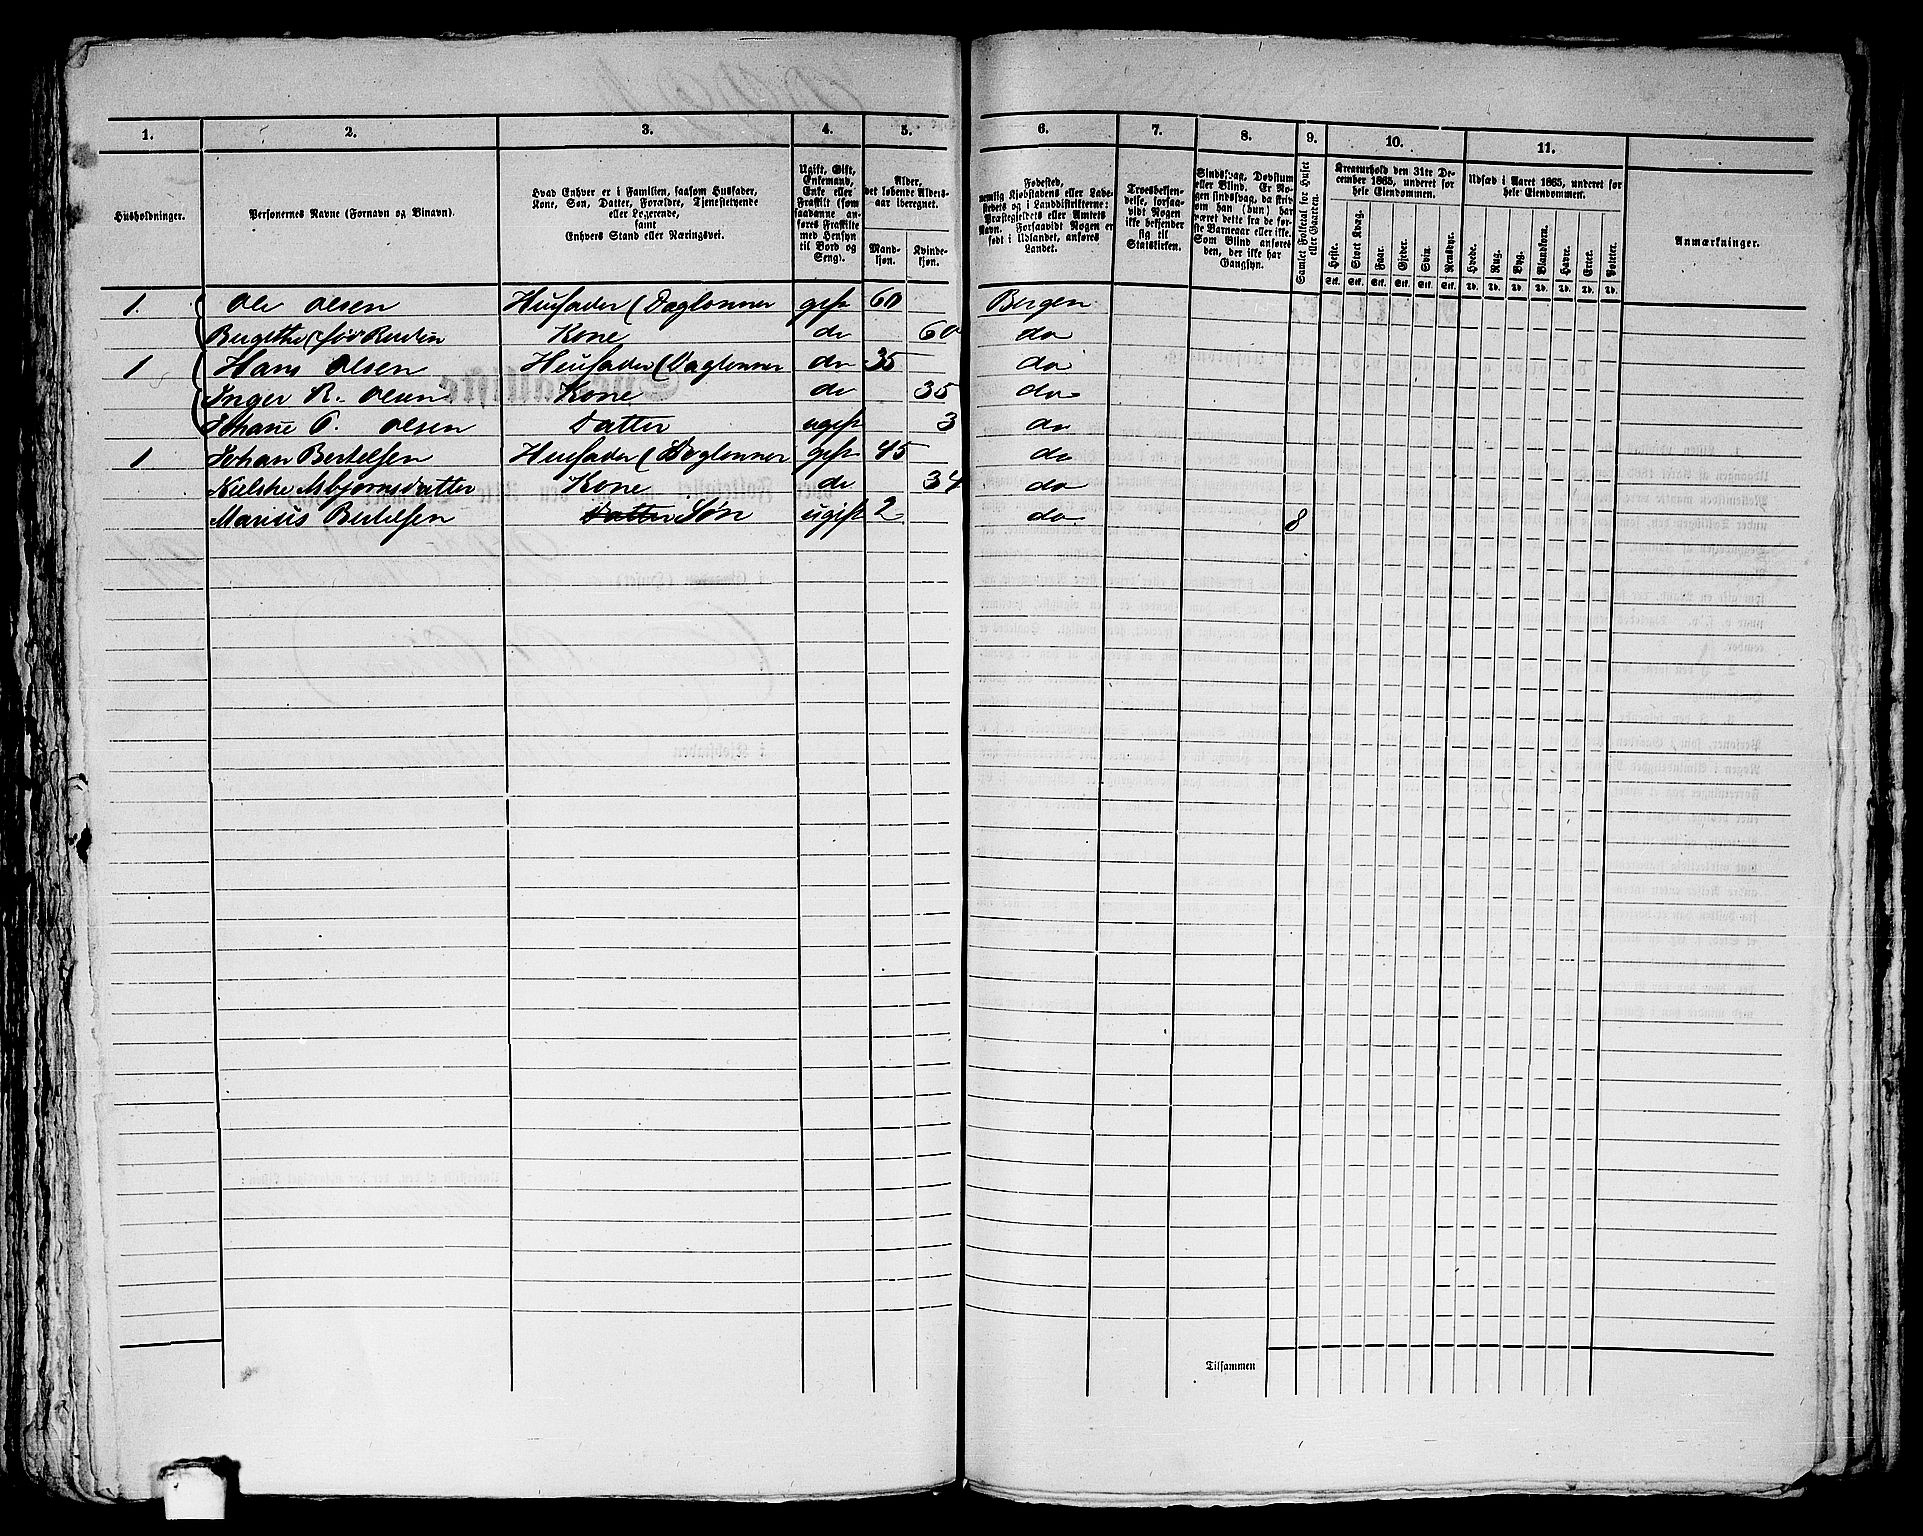 1. 2. 3. 4. 5. 6. 7. 8. 9. 10. 11.
Husholdninger.
Personernes Navne (Fornavn og Binavn).
Hvad Enhver er i Familien, saasom Husfader,
Kone, Søn, Datter, Forældre, Tjenestetyende
eller Logerende,
samt
Enhvers Stand eller Næringsvei.
Ugift, Gift,
Enkemand,
Enke eller
Fraskilt (som
saadanne an-
føres Fraskilte
med Hensyn
til Bord og
Seng).
Alder,
det løbende Alders-
aar iberegnet.
Mand-
kjøn.
Kvinde-
kjøn.
Fødested,
nemlig Kjøbstadens eller Lade-
stedets og i Landdistrikterne:
Præstegjeldets eller Amtets
Navn. Forsaavidt Nogen er
født i Udlandet, anføres
Landet.
Troesbekjen-
delse, forsaa-
vidt Nogen
ikke bekjender
sig til
Statskirken.
Sindssvag, Døvstum
eller Blind. Er No-
gen sindssvag, da skriv
om han (hun) har
været dette fra de før-
ste Barneaar eller ikke.
Som Blind anføres
den, der ikke har
Gangsyn.
Samlet Folketal for Huset
eller Gaarden.
Kreaturhold den 31te De-
cember 1865, underet for
hele Eiendommen.
Heste. Stort Kvæg. Faar. Gjeder. Svin. Rensdyr.
Stk. Stk. Stk. Stk. Stk. Stk.
Udsæd i Aaret 1865, underet for
hele Eiendommen.
Hvede. Rug. Byg. Blandkorn. Havre. Erter. Poteter.
Td. Td. Td. Td. Td. Td. Td.
Anmærkninger.
1. Ole Olsen Husfader (Daglønner gift 60 Bergen
Kone do 60 do
1 Hans Olsen Husfader (Daglønner do 35 do
Inger R. Olsen Kone do 35 do
Johane O. Olsen Datter ugift 3 do
1 Johan Bertelsen Husfader (Daglønner gift 45 do
Asbjørnsdatter Kone do 34 do
Marius Bertelsen Datter Søn ugift 2 do 8
Tilsammen